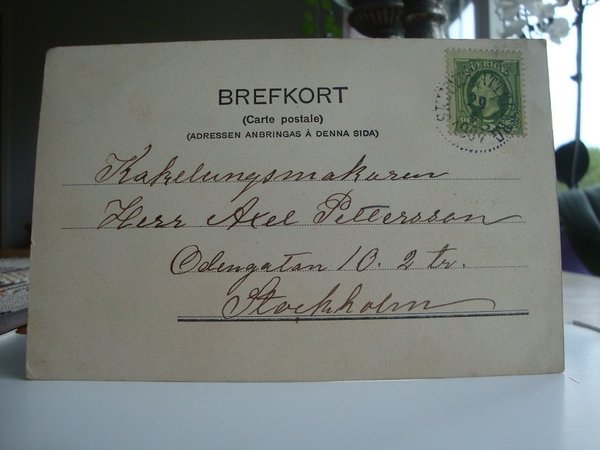 BREFKORT
(Carte postale)
(ADRESSEN ANBRINGAS Å DENNA SIDA)
SVERIGE
Kakelungsmakaren
Herr Axel Pettersson
Odengatan 10. 2 tr.
Stockholm